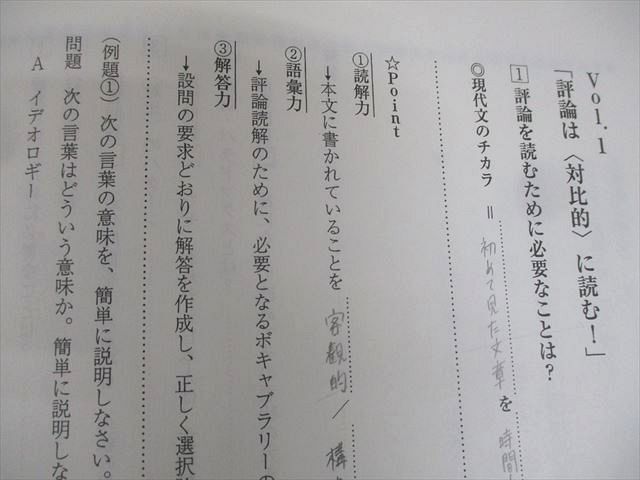 Vol.1
「評論は〈対比的〉に読む！」
1 評論を読むために必要なことは？
◎現代文のチカラ＝初めて見た文章を時間
☆Point
①読解力
→本文に書かれていることを客観的／構
②語彙力
→評論読解のために、必要となるボキャブラリーの
③解答力
→設問の要求どおりに解答を作成し、正しく選択
（例題①）次の言葉の意味を、簡単に説明しなさい。
問題 次の言葉はどういう意味か。簡単に説明しな
A イデオロギー